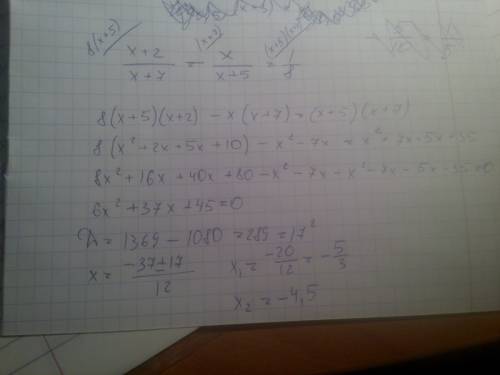 8(x+5) (x+7) (x+5)(x+7)
x+2/x+7 - x/x+5 = 1/8
8(x+5)(x+2) - x(x+7) = (x+5)(x+7)
8(x²+2x+5x+10) - x² - 7x = x² + 7x + 5x + 35
8x² + 16x + 40x + 80 - x² - 7x - x² - 7x - 5x - 35 = 0
6x² + 37x + 45 = 0
D = 1369 - 1080 = 289 = 17²
x = -37±17/12 x₁ = -20/12 = -5/3
x₂ = -4,5